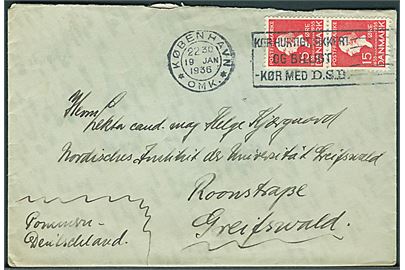 KØBENHAVN
22 30
19 JAN
1936
OMK.
KØR HURTIGT, SIKKERT
OG BILLIGT
-KØR MED D.S.B.
15 ØRE
DANMARK
Lektor cand. mag Helge Kjærgaard
Nordisches Institut der Universität Greifswald
Roonstraße
Greifswald.
Pommern -
Deutschland.